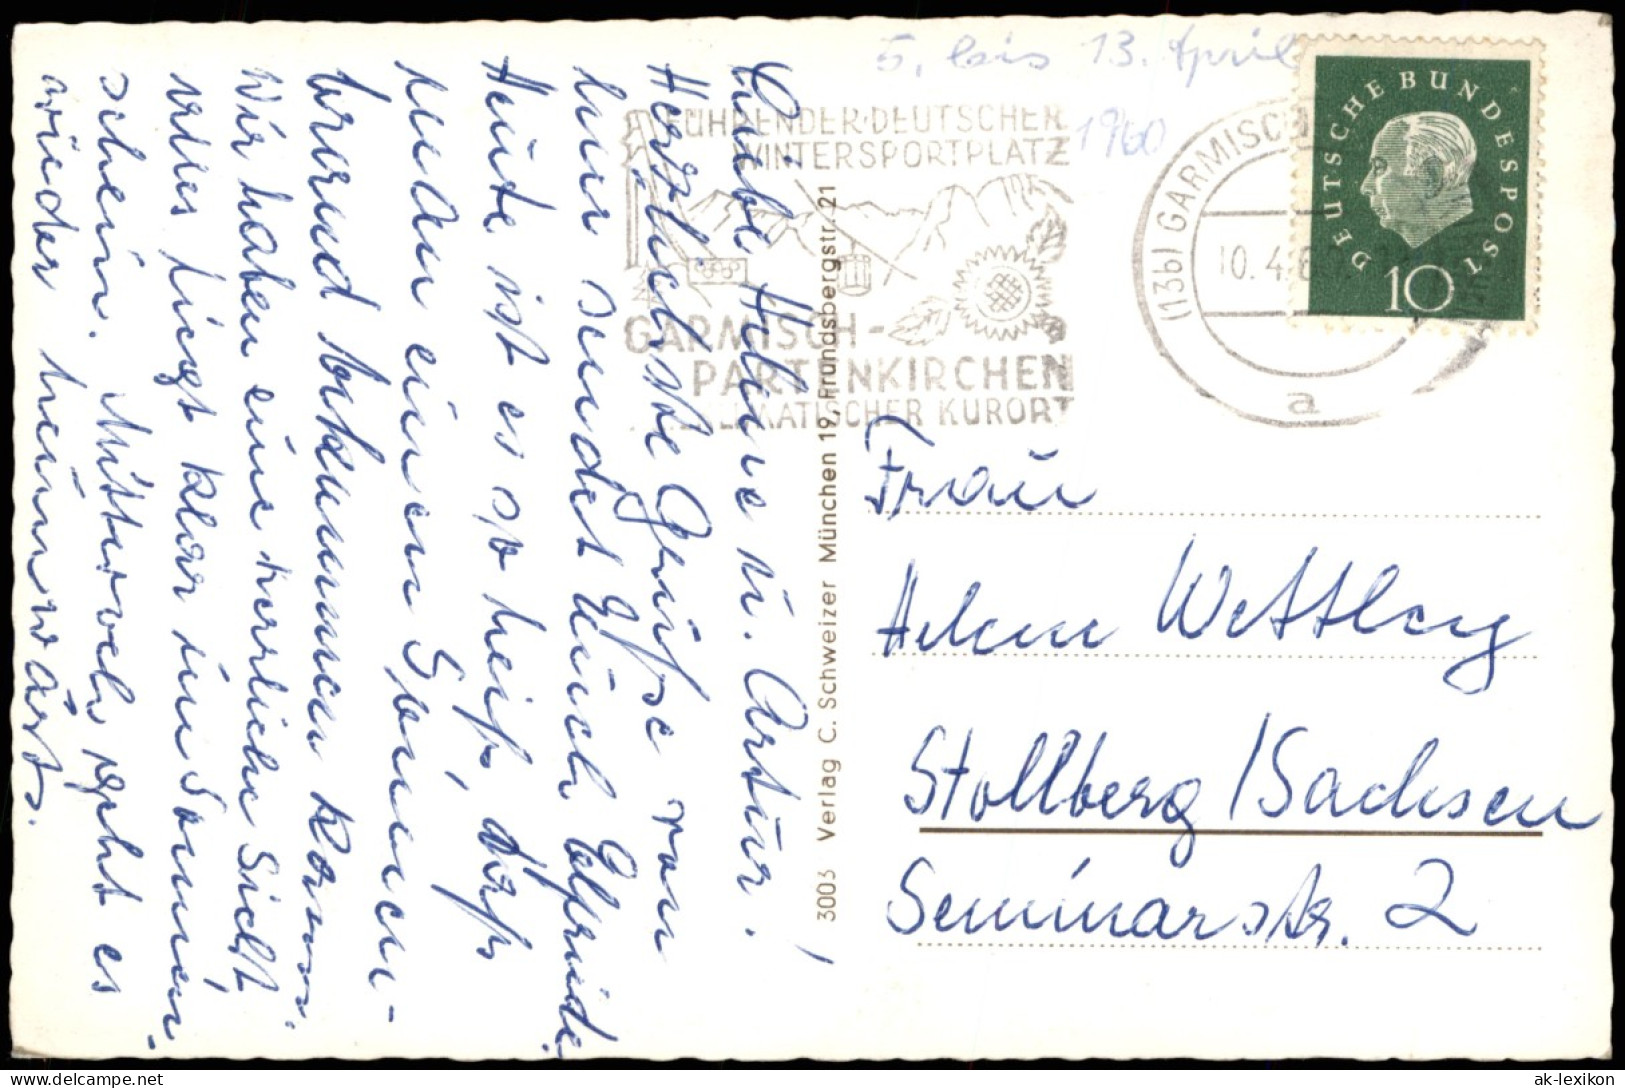 5. bis 13. April
1960
FÜHRENDER · DEUTSCHER
WINTERSPORTPLATZ
GARMISCH-
PARTENKIRCHEN
KURORT
(13b) GARMISCH
10.4.6
a
DEUTSCHE BUNDESPOST
10
Liebe Helene u. Artur!
Herzlichste Grüsse von
hier sendet Euch Elfriede.
Heute ist es so heiß, daß
man einen Sonnen-
brand bekommen kann.
Wir haben eine herrliche Sicht
alles liegt klar im Sonnen-
schein. Mittwoch geht es
wieder heimwärts.
3003 Verlag C. Schweizer München 19, Frundsbergstr. 21
Frau
Helene Wettley
Stollberg / Sachsen
Seminarstr. 2
ak-lexikon